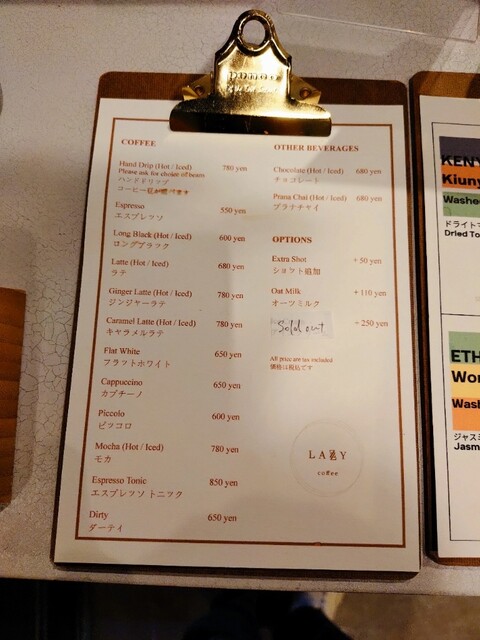 COFFEE
Hand Drip (Hot / Iced) 780 yen
Please ask for choice of beans
ハンドドリップ
コーヒー豆が選べます
Espresso 550 yen
エスプレッソ
Long Black (Hot / Iced) 600 yen
ロングブラック
Latte (Hot / Iced) 680 yen
ラテ
Ginger Latte (Hot / Iced) 780 yen
ジンジャーラテ
Caramel Latte (Hot / Iced) 780 yen
キャラメルラテ
Flat White 650 yen
フラットホワイト
Cappuccino 650 yen
カプチーノ
Piccolo 600 yen
ピッコロ
Mocha (Hot / Iced) 780 yen
モカ
Espresso Tonic 850 yen
エスプレッソ トニック
Dirty 650 yen
ダーティ
OTHER BEVERAGES
Chocolate (Hot / Iced) 680 yen
チョコレート
Prana Chai (Hot / Iced) 680 yen
プラナチャイ
OPTIONS
Extra Shot + 50 yen
ショット追加
Oat Milk + 110 yen
オーツミルク
Sold out + 250 yen
All price are tax included
価格は税込です
coffee
KENY
Kiuny
Washe
ドライトマ
Dried To
ETH
Wor
Wash
ジャスミ
Jasm